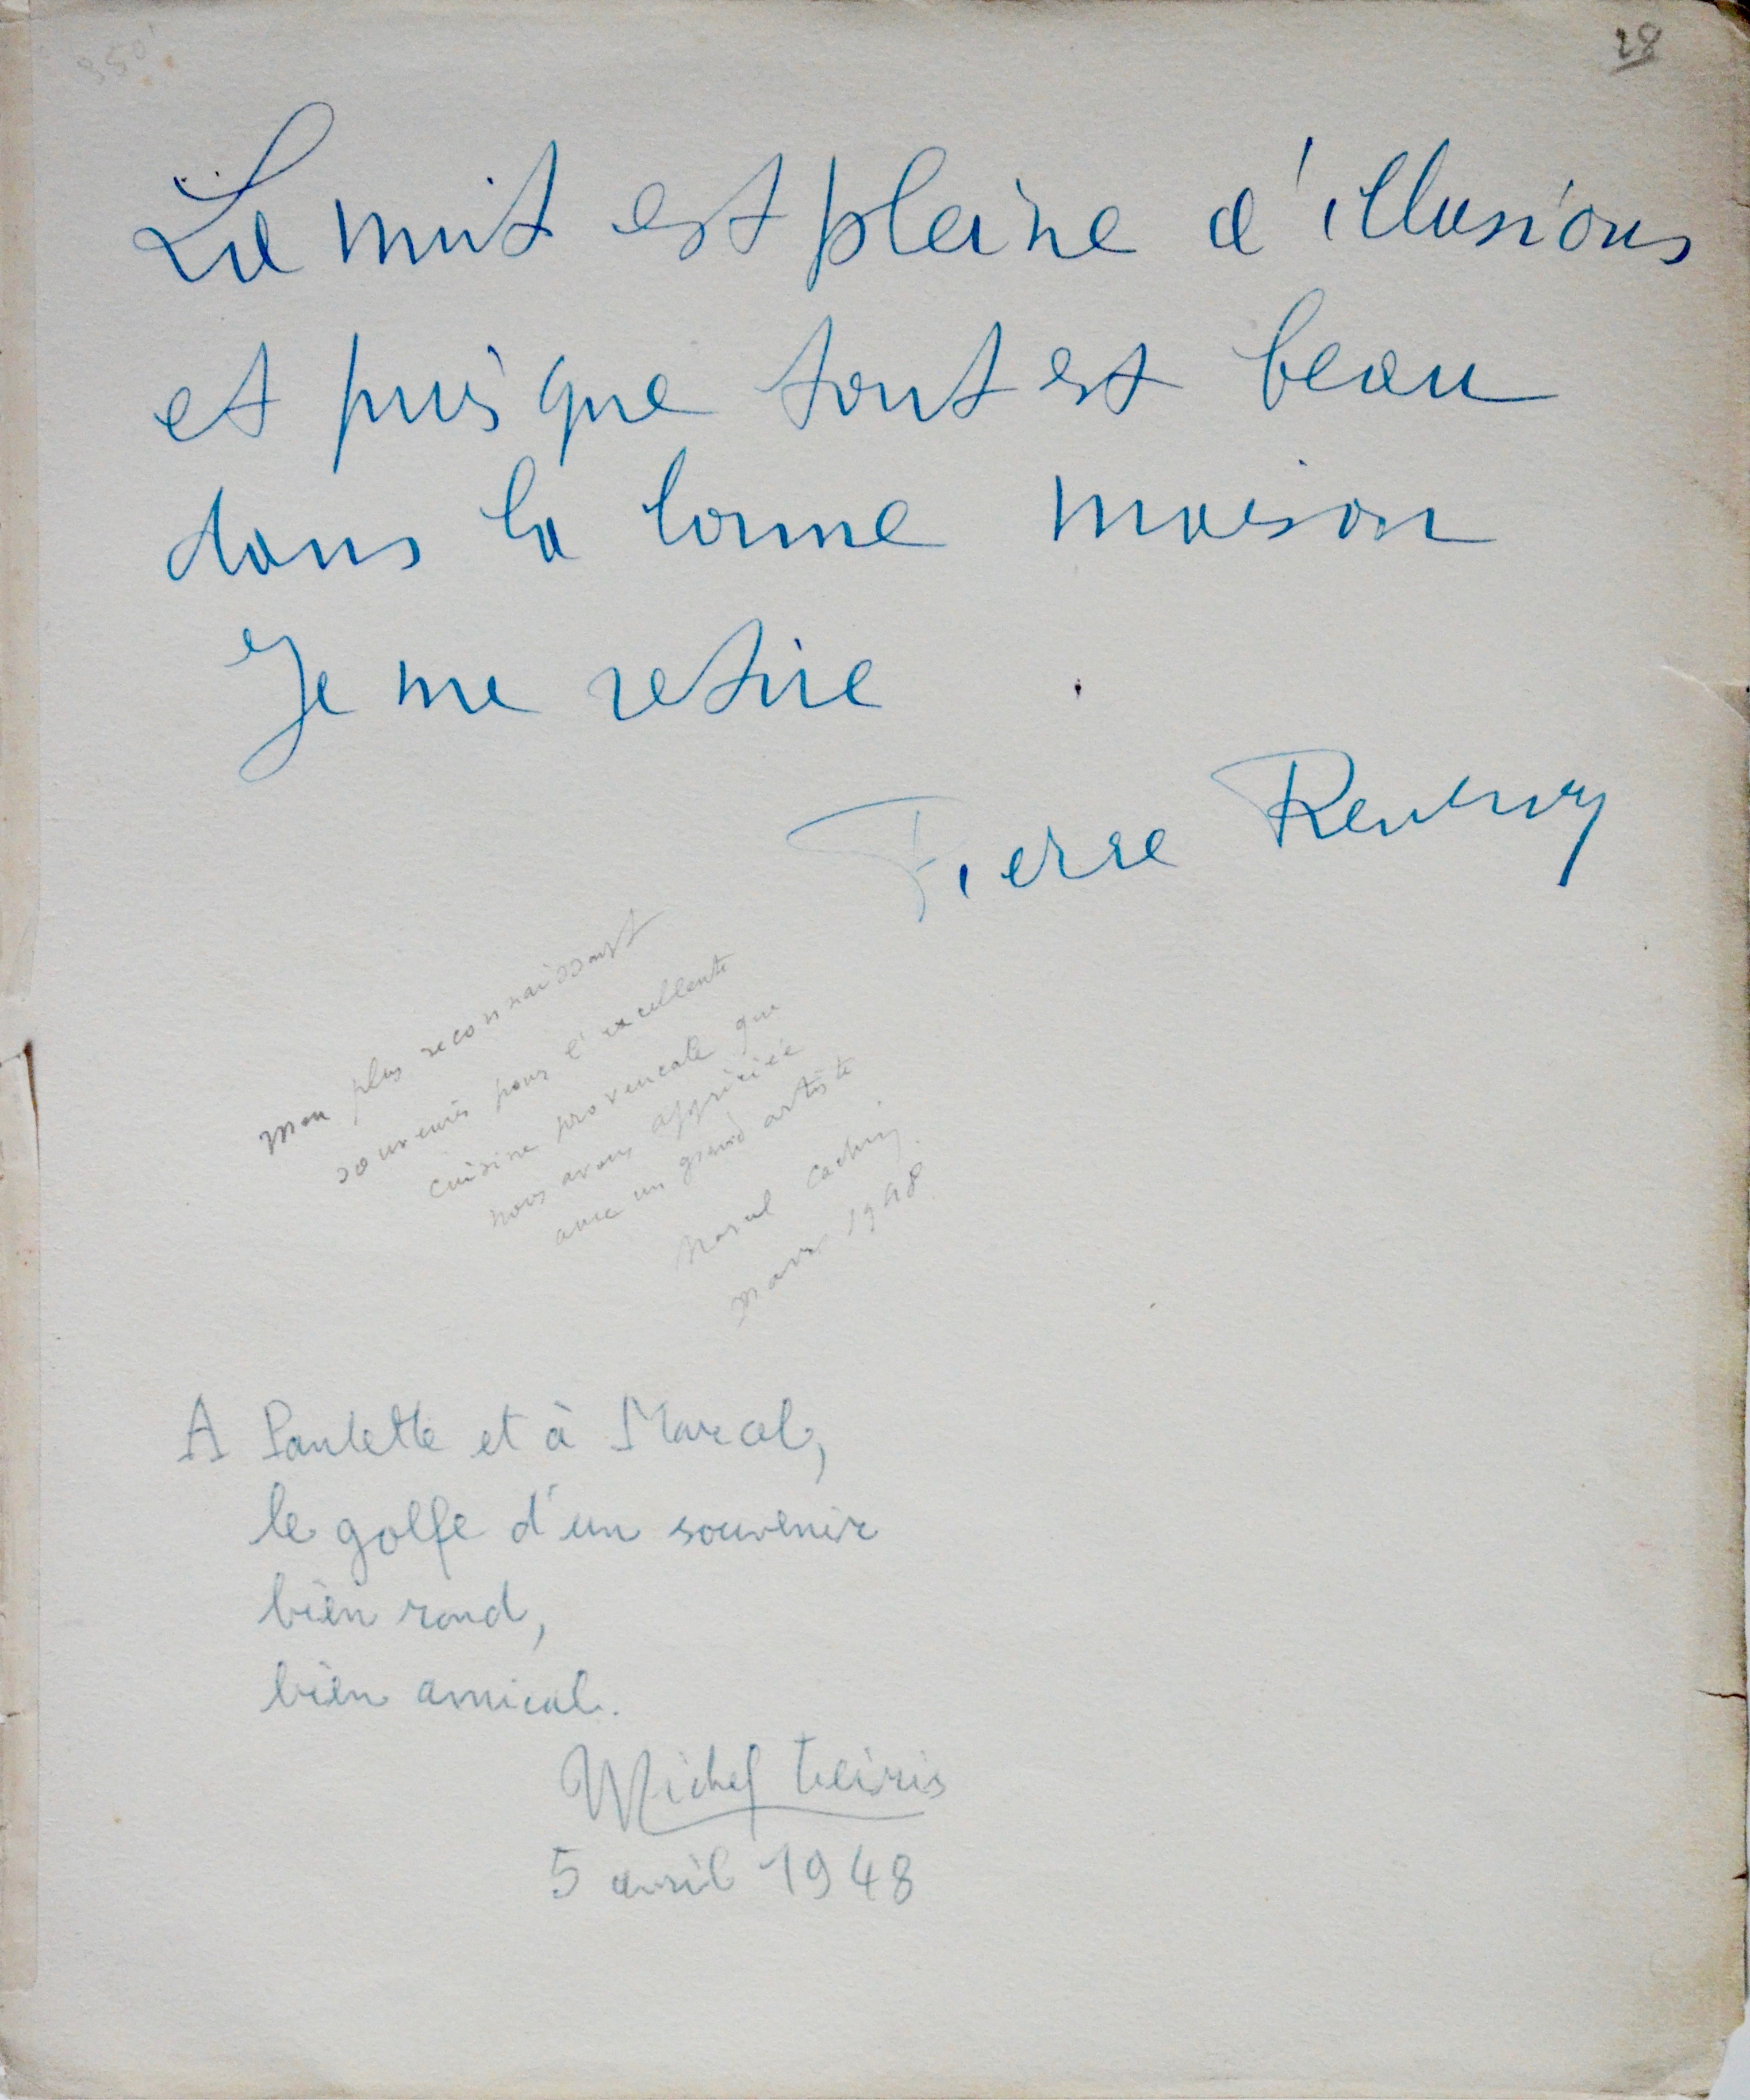 28
La nuit est pleine d'illusions
et puisque tout est beau
dans la bonne maison
Je me retire
Pierre Reverdy
Mon plus reconnaissant
souvenir pour l'excellente
cuisine provencale que
nous avons appréciée
avec un grand artiste
Marcel Cachin
mars 1948
A Paulette et à Marcel,
le golfe d'un souvenir
bien rond,
bien amical.
Michel Leiris
5 avril 1948